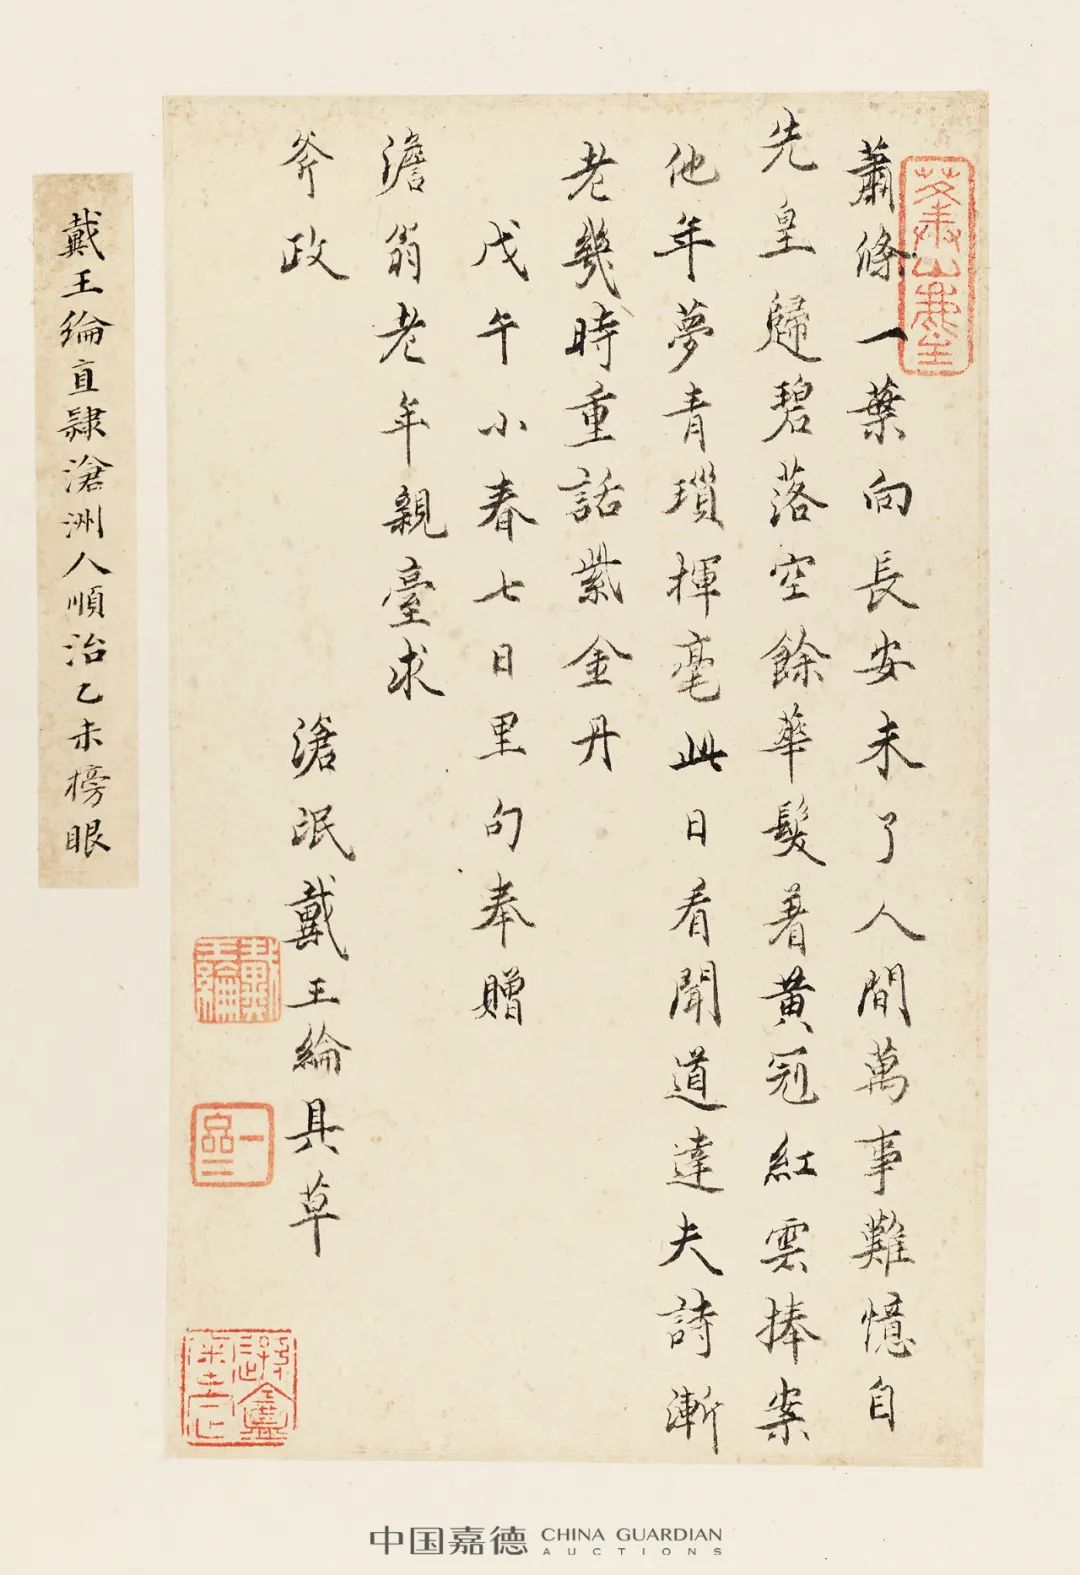 蕭條一葉向長安未了人間萬事難憶自
先皇歸碧落空餘華髮着黃冠紅雲捧案
他年夢青瑣揮毫此日看聞道達夫詩漸
老幾時重話紫金丹
戊午小春七日里句奉贈
澹翁老年親臺求
斧政
滄氓戴王綸具草
戴王綸
一品
戴王綸直隸滄洲人順治乙未榜眼
中国嘉德 CHINA GUARDIAN
AUCTIONS